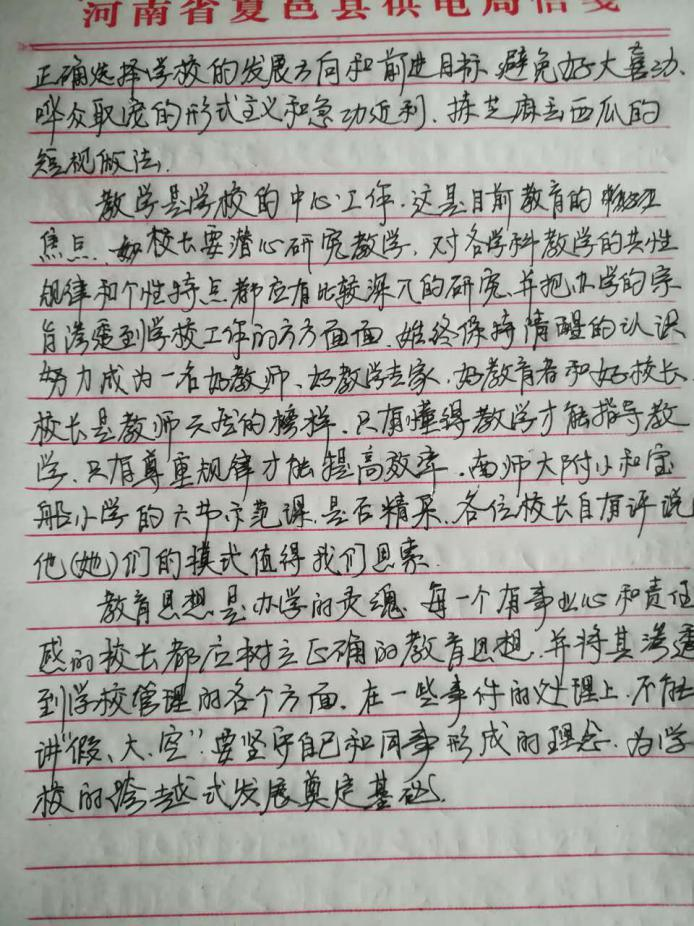 河南省夏邑县供电局信笺
正确选择学校的发展方向和前进目标,避免好大喜功、
哗众取宠的形式主义和急功近利、拣芝麻丢西瓜的
短视做法.
教学是学校的中心工作.这是目前教育的
焦点.校长要潜心研究教学,对各学科教学的共性
规律和个性特点都应有比较深入的研究,并把办学的宗
旨渗透到学校工作的方方面面.始终保持清醒的认识
努力成为一名好教师、好教学专家、好教育者和好校长.
校长是教师无声的榜样.只有懂得教学才能指导教
学.只有尊重规律才能提高效率.南师大附小和宝
船小学的六节示范课.是否精采.各位校长自有评说
他(她)们的模式值得我们思索.
教育思想是办学的灵魂.每一个有事业心和责任
感的校长都应树立正确的教育思想.并将其渗透
到学校管理的各个方面.在一些事件的处理上.不能
讲“假、大、空”.要坚守自己和同事形成的理念.为学
校的跨越式发展奠定基础.